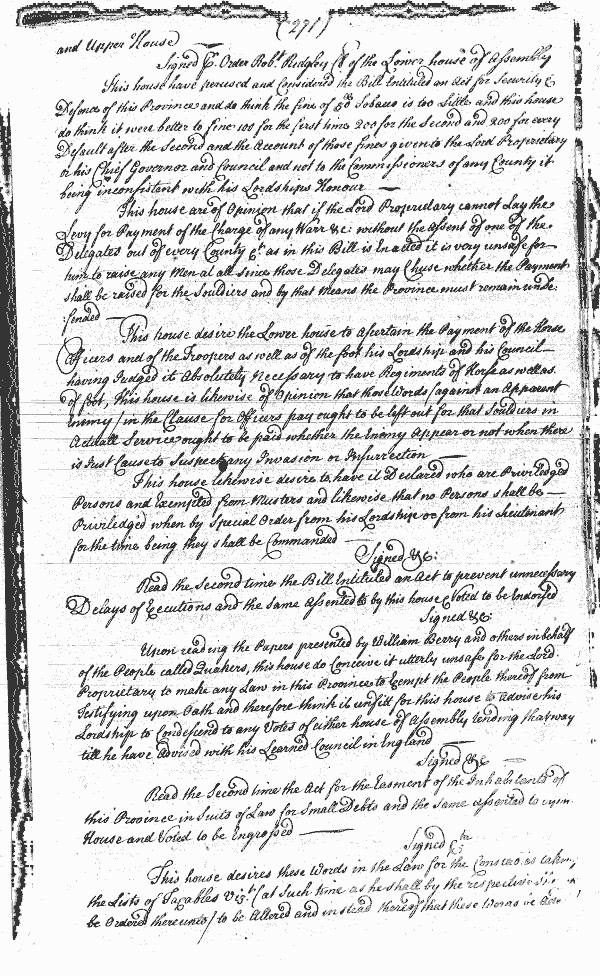 (271)
and Upper House
Signed p. Order Robt. Ridgley Clk of the Lower house of Assembly
This house have perused and Considered the Bill Entituled an Act for Security &
Defence of this Province and do think the fine of 50 Tobacco is too Little and this house
do think it were better to fine 100 for the first time 200 for the Second and 200 for every
Default after the Second and the Account of those fines given to the Lord Proprietary
or his Chief Governor and Council and not to the Commissioners of any County it
being inconsistent with his Lordships Honour
This house are of Opinion that if the Lord Proprietary cannot Lay the
Levy for Payment of the Charge of any Warr &c: without the Assent of one of the
Delegates out of every County &c as in this Bill is Enacted it is very unsafe for
him to raise any Men at all since those Delegates may Chuse whether the Payment
shall be raised for the Souldiers and by that means the Province must remain unde-
fended
This house desire the Lower house to Ascertain the Payment of the Horse
Officers and of the Troopers as well as of the foot his Lordship and his Council
having Judged it Absolutely Necessary to have Regiments of Horse as well as
of foot, This house is likewise of Opinion that those Words (against an Apparent
Enemy) in the Clause for Officers pay ought to be left out for that Souldiers in
Actuall Service ought to be paid whether the Enemy Appear or not when there
is Just Cause to Suspect any Invasion or Insurrection
This house likewise desire to have it Declared who are Priviledged
Persons and Exempted from Musters and likewise that no Persons shall be
Priviledged when by Special Order from his Lordship or from his Lieutenant
for the time being they shall be Commanded
Signed &c:
Read the Second time the Bill Entituled an Act to prevent unnecessary
Delays of Executions and the same Assented to by this house & Voted to be Endorsed
Signed &c:
Upon reading the Papers presented by William Berry and others in behalf
of the People called Quakers, this house do Conceive it utterly unsafe for the Lord
Proprietary to make any Law in this Province to Exempt the People thereof from
Testifying upon Oath and therefore think it unfid for this house to Advise his
Lordship to Condescend to any Votes of either house of Assembly tending that way
till he have Advised with his Learned Council in England
Signed &c
Read the Second time the Act for the Easment of the Inhabitants of
this Province in Suits of Law for Small Debts and the same assented to upon
House and Voted to be Engrossed
Signed &c
This house desires these Words in the Law for the taking
the Lists of Taxables Viz.t (at Such time as he shall by the respective
be Ordered thereunto) to be Altered and instead thereof that these Words be